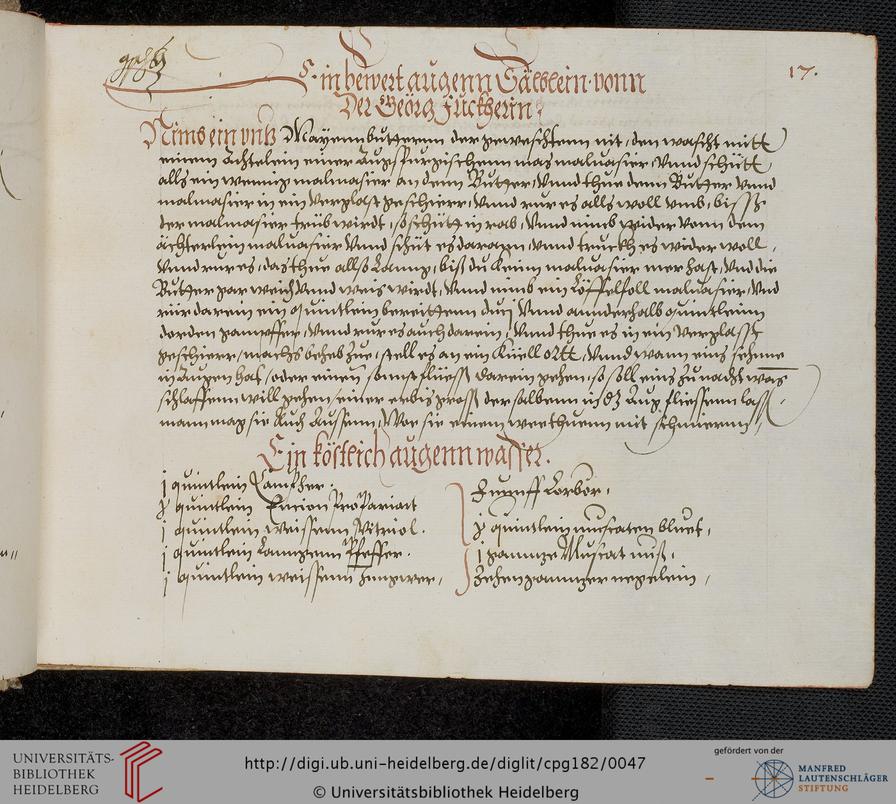 17.
Ein bewert augenn Sälblein vonn
Der Georg Fuckherin
Nims ein untz Mayenn butterenn der geweschtenn nit, den wascht mitt
einem Achtelein einer Augspurgischenn mas maluasier, Vnnd schütt
alls ein wennig malmasier an denn Butter, Vnnd thue denn Butter Vnnd
malmasier in ein verglast geschierr, Vnnd rur es alls woll vmb, bissz
der malmasier trüb wirdt, so schütt in rab, Vnnd nimb wider vonn dem
ächterlein maluasier Vnnd schüt es darann, vnnd truckh es wider woll,
Vnnd rur es, das thue allso lanng, biß du keinn maluasier mer hast, Vnd die
Butter gar weich Vnnd weis wirdt, Vnnd nimb ein Löffelfoll maluasier, Vnd
rür darein ein quintlein bereittenn Vnnd annderhalb quintleinn
gampffer, Vnnd rur es auch darein, Vnnd thue es in ein verglasst
geschierr, machs beheb zue, stell es an ein küell ortt, Vnnd wann eins
in Augen hat, oder einen sonnst flüess darein gehen, so soll eins zu nacht wans
schlaffenn will gehen, einer erbis gross der salbenn in Aug fliessenn lass
mann mag sie Auch Aussenn, Wo sie einem weethuenn mit schmierenn,
Ein köstlich augenn wasser.
j quintlein Campher.
quintlein
j quintlein weissenn Vitriol.
j quintlein Lanngenn Pfeffer.
j quintlein weissenn Jmpwer,
Lorbor,
quintlein muscaten bluet,
j gannze Muscat nuss,
Zehen gannzer negelein,
UNIVERSITÄTS-
BIBLIOTHEK
HEIDELBERG
http://digi.ub.uni-heidelberg.de/diglit/cpg182/0047
© Universitätsbibliothek Heidelberg
gefördert von der
MANFRED
LAUTENSCHLÄGER
STIFTUNG